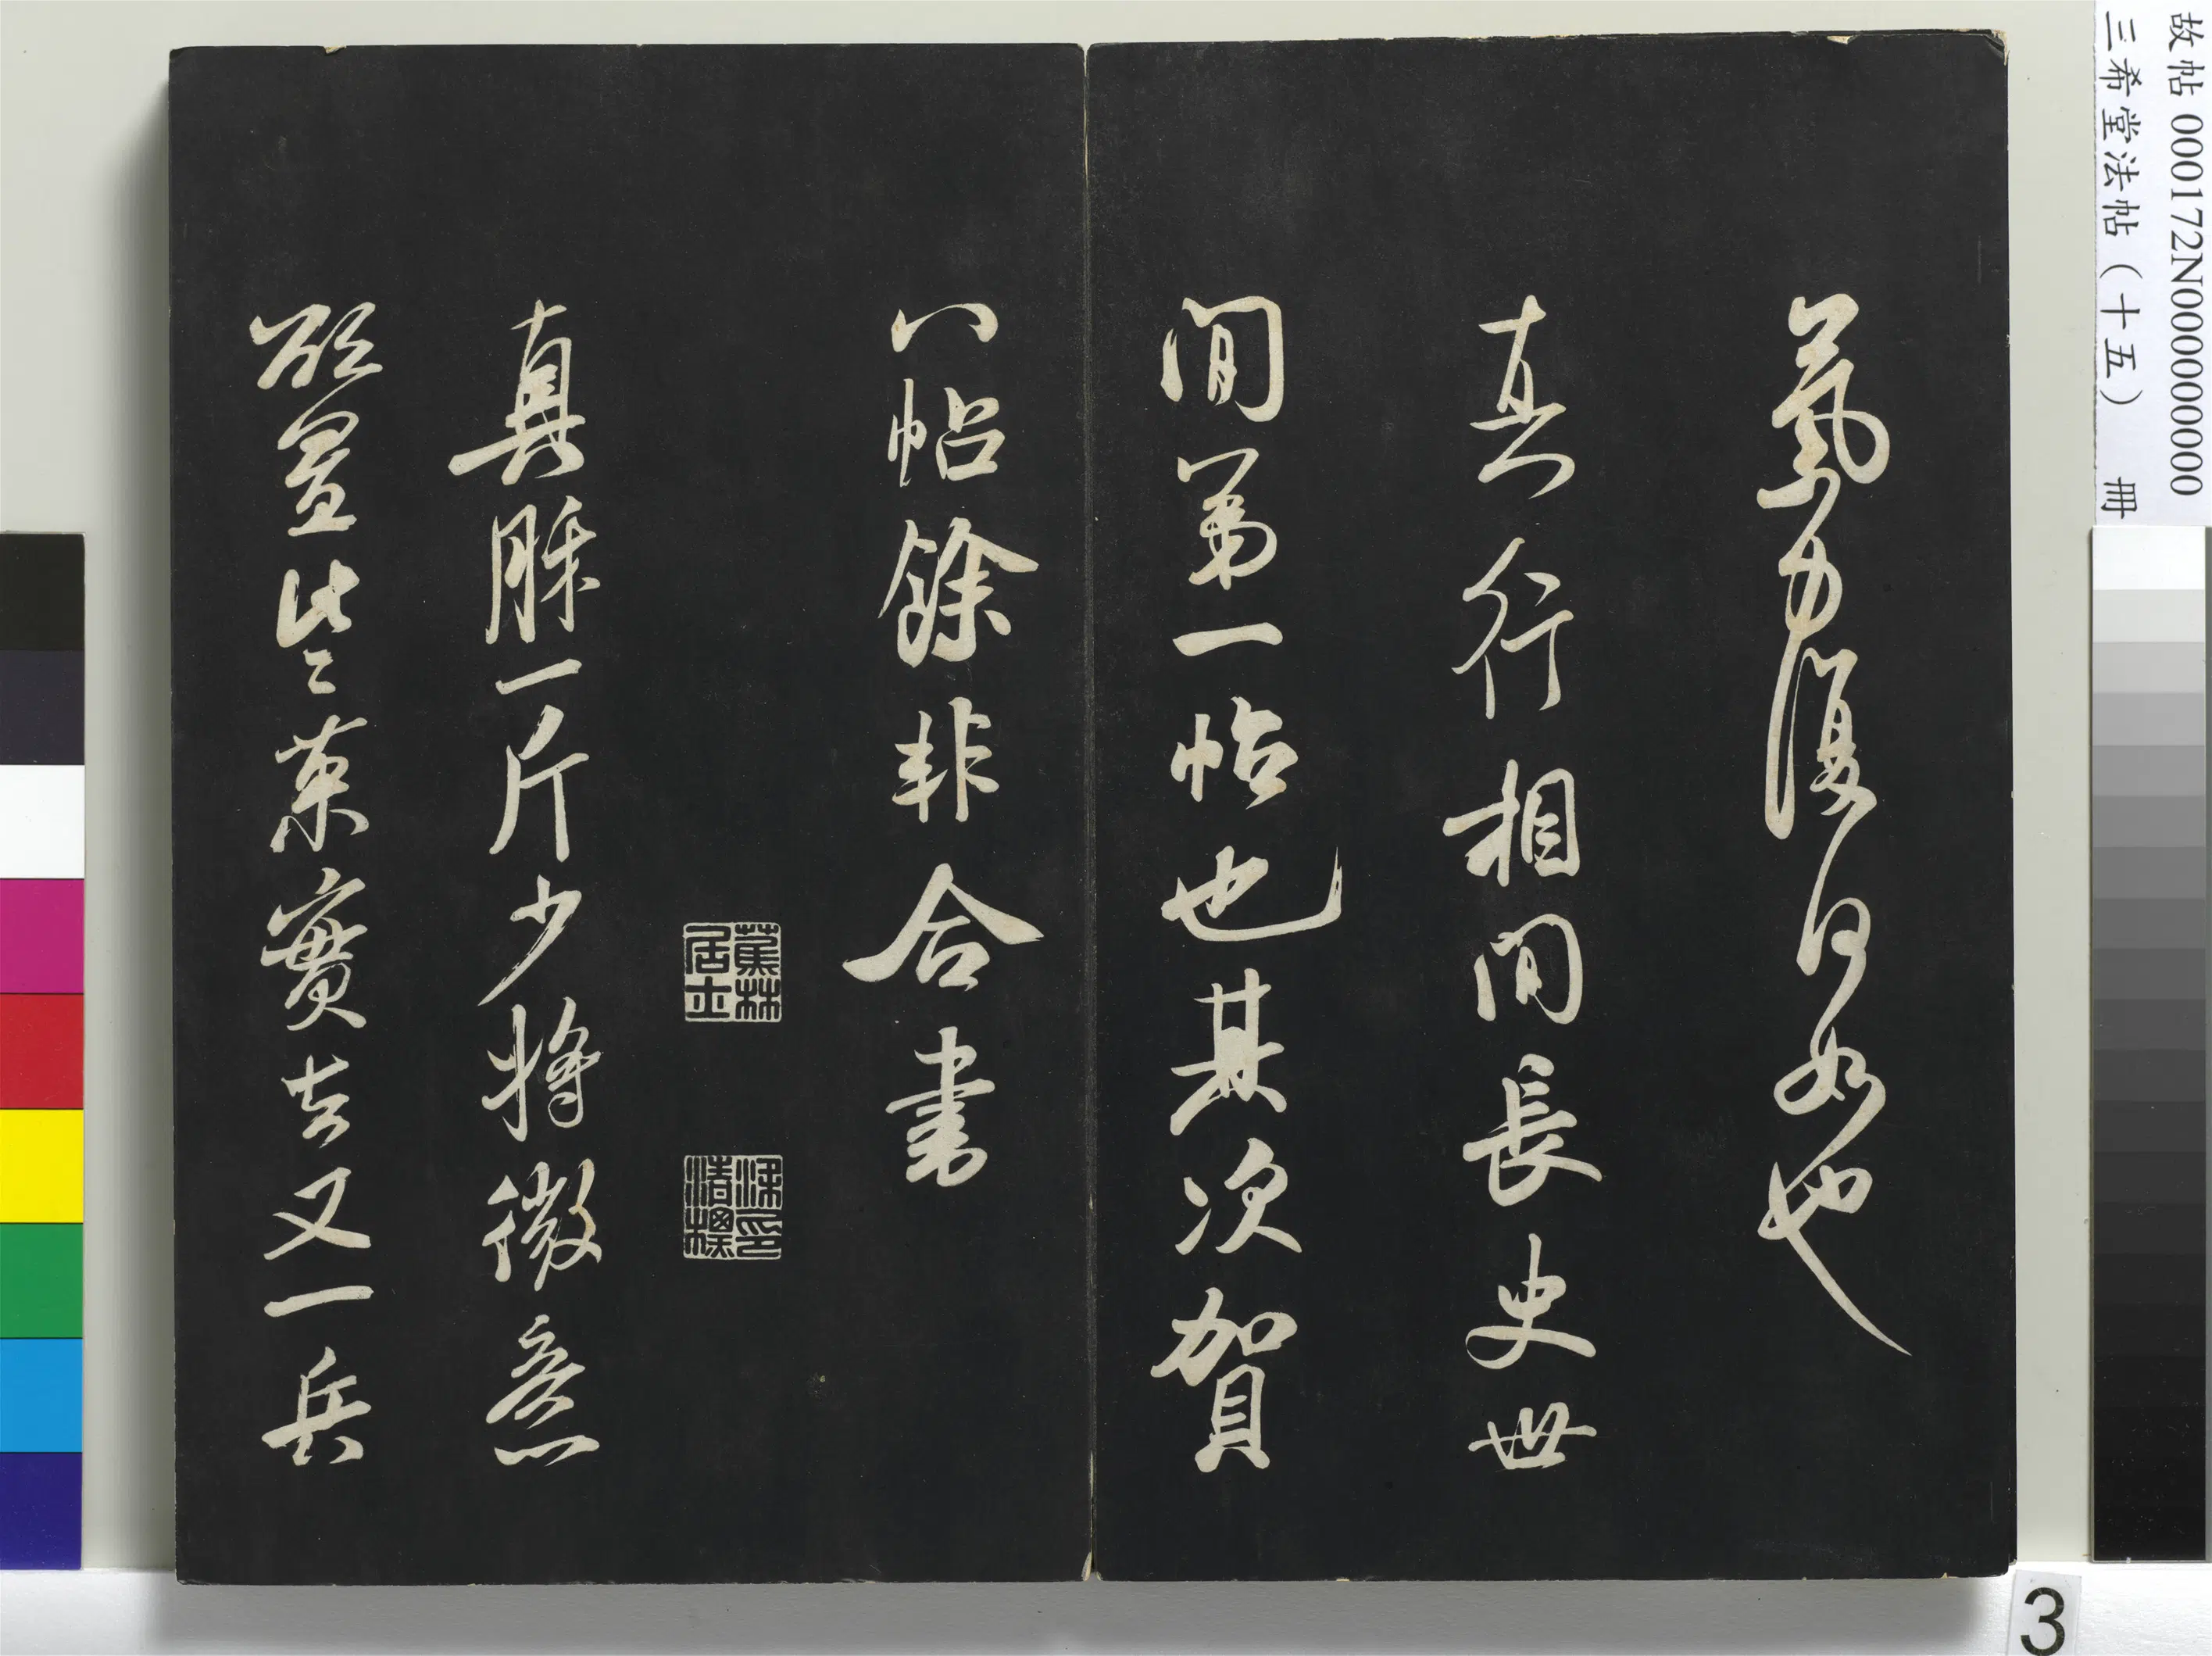 故帖 000172N000000000
三希堂法帖（十五） 冊
氣力復何如也
真行相間長史世
間第一帖也其次賀
八帖餘非合書
蕉林居士
梁印清標
真酥一斤少將微意
欲置些果實去又一兵
3